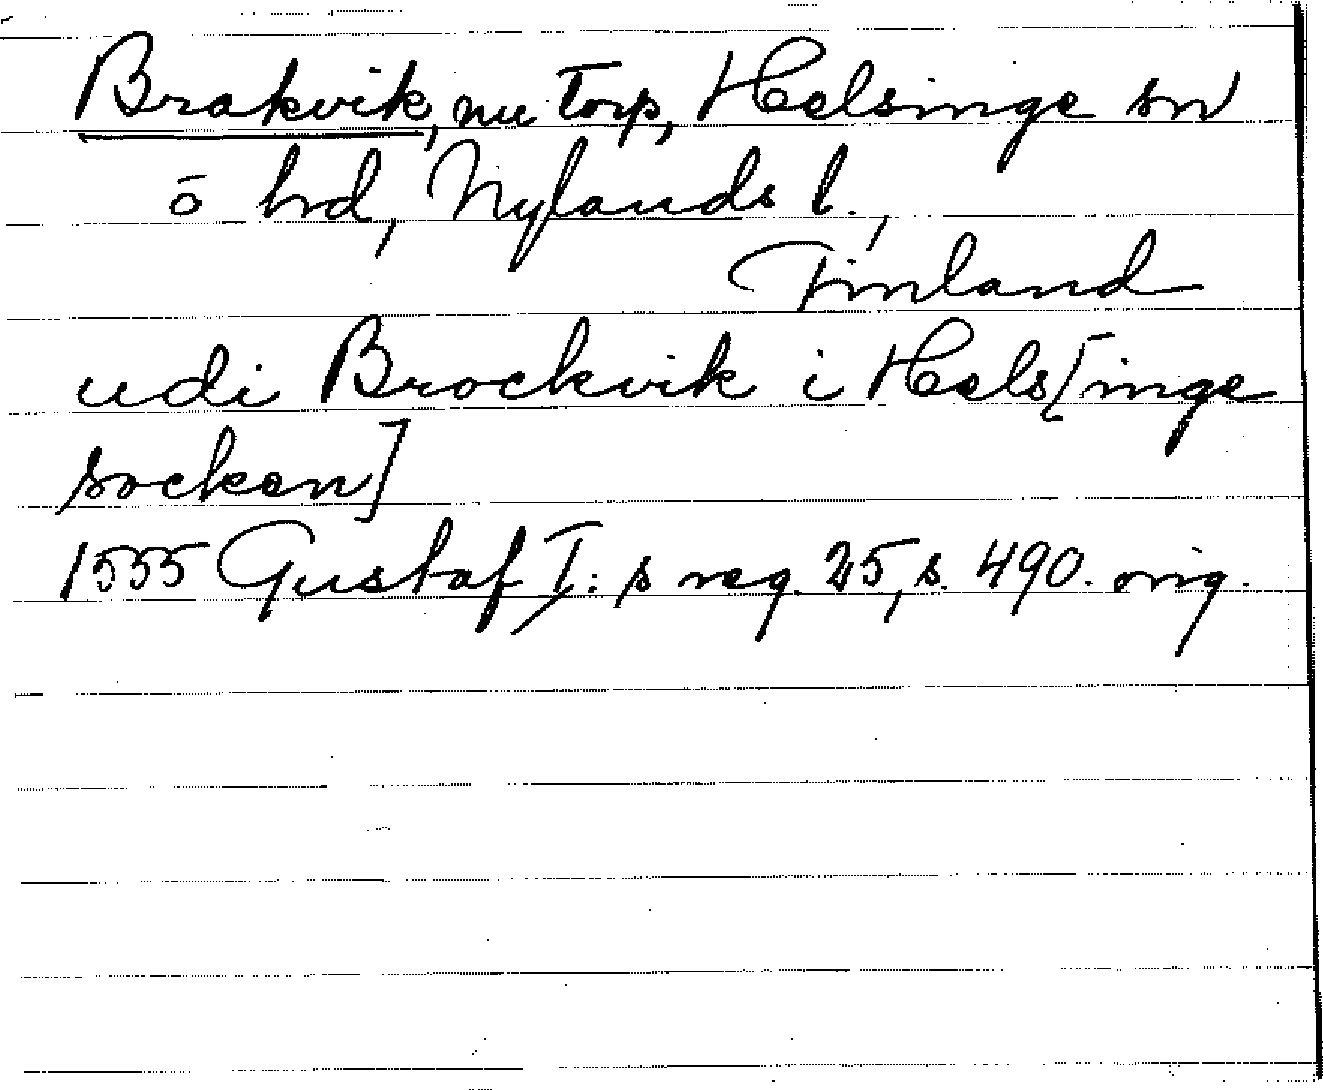 Brakvik, nu Torp, Helsinge sn
o hrd, Nylands l.,
Finland
udi Brockvik i Hels[inge
socken]
1555 Gustaf I: s reg. 25, s. 490. orig.